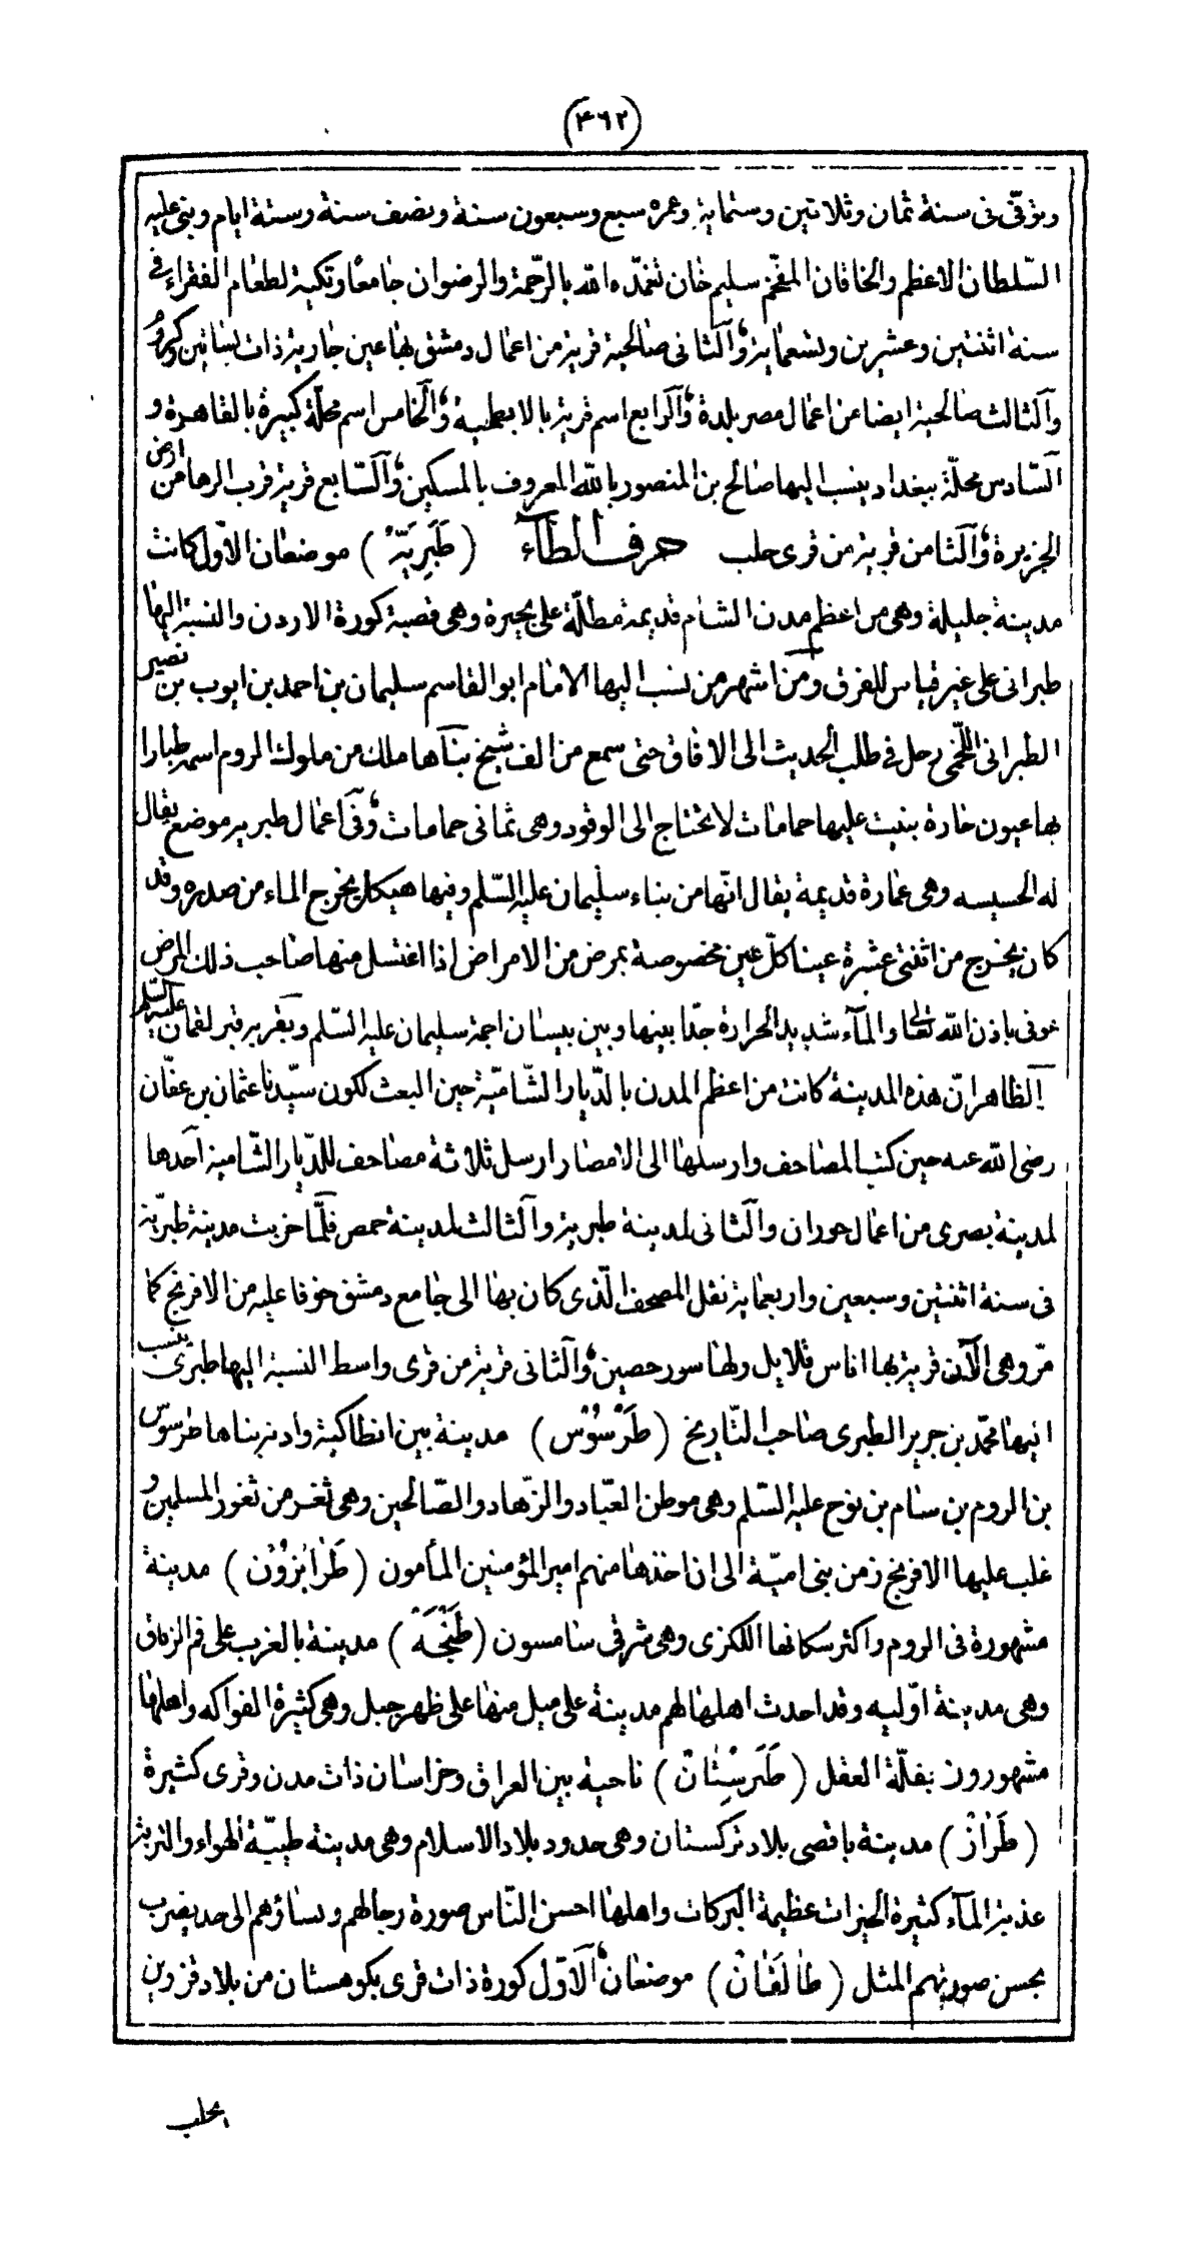 (٤٦٢)
وتوفى فى سنة ثمان وثلاثين وستماية وعمره سبع وسبعون سنة ونصف سنة وستة ايام وبنى عليه
السّلطان الاعظم والخاقان المفخّم سليم خان تغمّده الله بالرّحمة والرضوان جامعًا وتكية لطعام الفقراء فى
سنة اثنتين وعشرين وتسعماية وٱلثانى صالحية قرية من اعمال دمشق بها عين جارية ذات بساتين وكروم
وٱلثالث صالحية ايضا من اعمال مصر بلدة وٱلرابع اسم قرية بالابطحية وٱلخامس اسم محلّة كبيرة بالقاهرة و
ٱلسّادس محلّة ببغداد ينسب اليها صالح بن المنصور بالله المعروف بالمسكين وٱلسّابع قرية قرب الرها من ارض
الجزيرة وٱلثامن قرية من قرى حلب حرف الطآء (طَبَرِيَّة) موضعان الاوّل كانت
مدينة جليلة وهى من اعظم مدن الشام قديمة مطلّة على بحيرة وهى قصبة كورة الاردن والنسبة اليها
طبرانى على غير قياس للفرق ومن اشهر من نسب اليها الامام ابو القاسم سليمان بن احمد بن ايوب بن نصير
الطبرانى اللّخمى رحل فى طلب الحديث الى الافاق حتى سمع من الف شيخ بنآها ملك من ملوك الروم اسمه طبارا
بها عيون حارة بنيت عليها حمامات لا تحتاج الى الوقود وهى ثمانى حمامات وفى اعمال طبرية موضع يقال
له الحسيسه وهى عمارة قديمة يقال انّها من بناء سليمان عليه السّلم وفيها هيكل يخرج الماء من صدره وقد
كان يخرج من اثنتى عشرة عينا كلّ عين مخصوصة بمرض من الامراض اذا اغتسل منها صاحب ذلك المرض
عوفى باذن الله تعالى والمآء شديد الحرارة جدّا بينها وبين بيسان اجمة سليمان عليه السّلم وبقربه قبر لقمان عليه السّلم
ٱلظاهر انّ هذه المدينة كانت من اعظم المدن بالدّيار الشّاميّة حين البعث لكون سيّدنا عثمان بن عفّان
رضى الله عنه حين كتب المصاحف وارسلها الى الامصار ارسل ثلاثة مصاحف للدّيار الشّامية احدها
لمدينة بصرى من اعمال حوران والثّانى لمدينة طبرية وٱلثالث لمدينة حمص فلمّا خربت مدينة طبريّة
فى سنة اثنتين وسبعين واربعماية نقل المصحف الّذى كان بها الى جامع دمشق خوفا عليه من الافرنج كما
مرّ وهى الآن قرية بها اناس قلايل ولها سور حصين وٱلثانى قرية من قرى واسط النسبة اليها طبرى ينسب
اليها محمّد بن جرير الطبرى صاحب التّاريخ (طَرْسُوْس) مدينة بين انطاكية وادنه بناها طرسوس
بن الروم بن سام بن نوح عليه السّلم وهى موطن العبّاد والزّهاد والصّالحين وهى ثغر من ثغور المسلمين و
غلب عليها الافرنج زمن بنى اميّة الى ان اخذها منهم امير المؤمنين المأمون (طَرَابَزُوْن) مدينة
مشهورة فى الروم واكثر سكانها اللكزى وهى شرقى سامسون (طَنْجَة) مدينة بالغرب على فم الزقاق
وهى مدينة اوّليه وقد احدث اهلها لهم مدينة على ميل منها على ظهر جبل وهى كثيرة الفواكه واهلها
مشهورون بقلّة العقل (طَبَرسْتَان) ناحية بين العراق وخراسان ذات مدن وقرى كثيرة
(طَرَاز) مدينة باقصى بلاد تركستان وهى حدود بلاد الاسلام وهى مدينة طيّبة الهواء والتربة
عذبة المآء كثيرة الخيرات عظيمة البركات واهلها احسن النّاس صورة رجالهم ونساؤهم الى حد يضرب
بحسن صورتهم المثل (طَالَقَان) موضعان ٱلاوّل كورة ذات قرى بكوهستان من بلاد قزوين